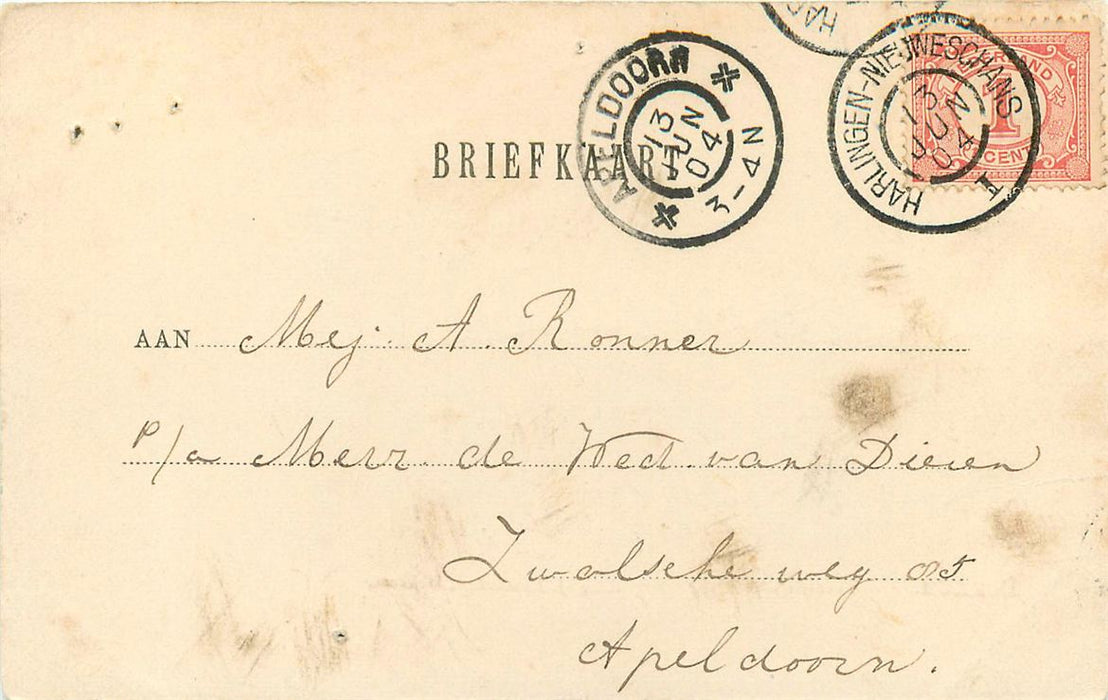 HARLINGEN-NIEUWESCHANS I
13 JUN 04
1
CENT
APELDOORN
13 JUN 04
3-4N
BRIEFKAART
AAN Mej. A. Ronner
p/a Mevr. de Wed. van Dieren
Zwolsche weg 85
Apeldoorn.